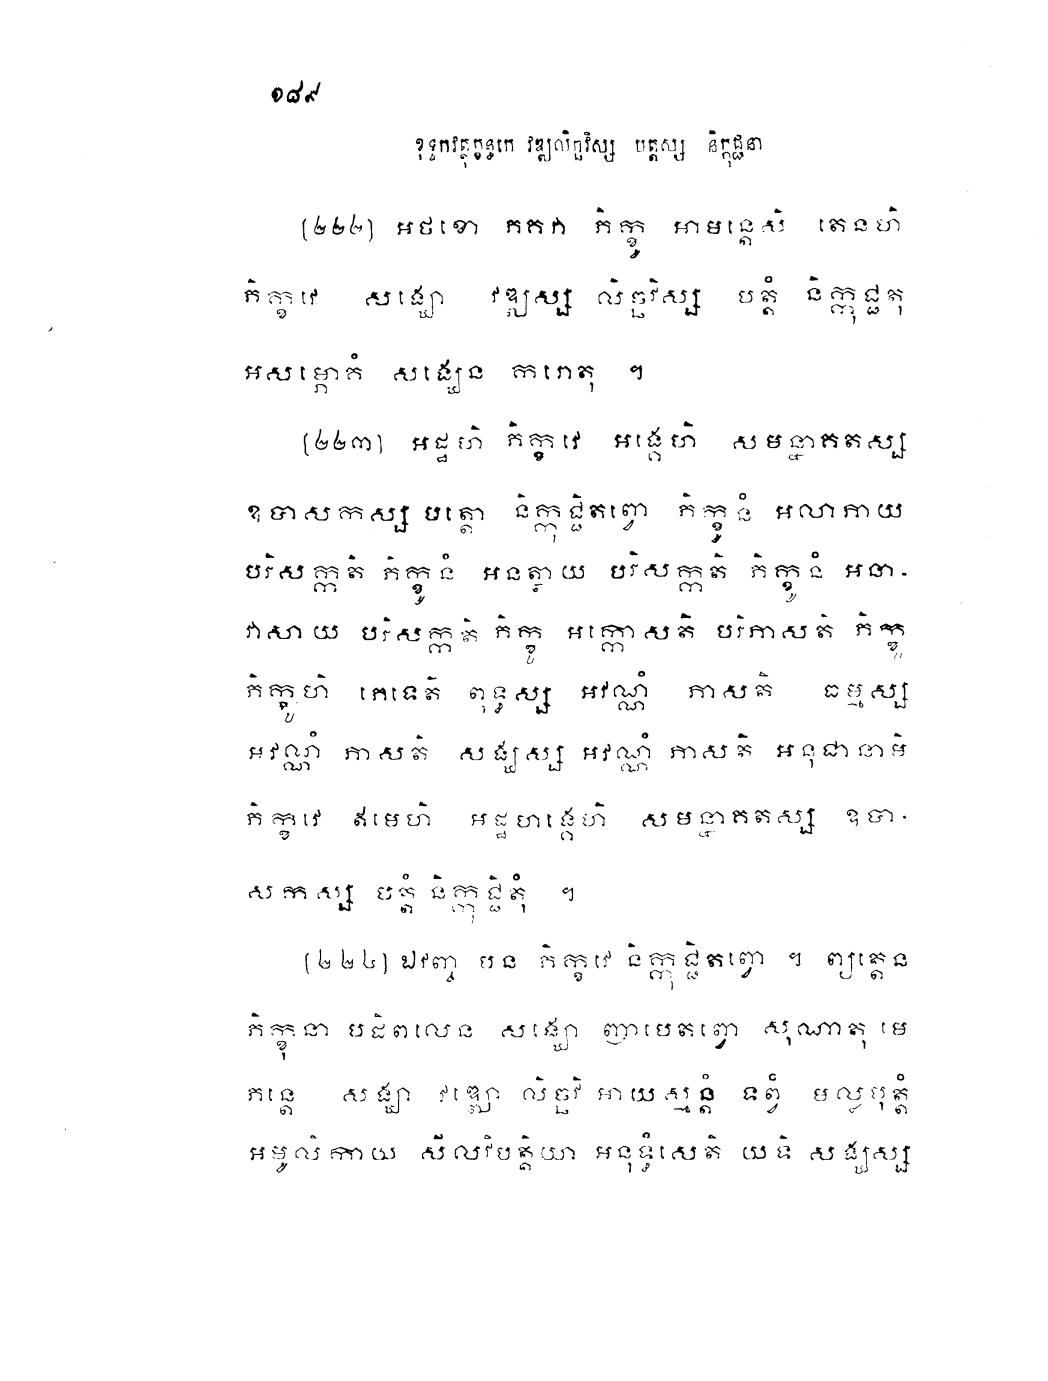 ១៨៩
ខុទ្ទកវត្ថុក្ខន្ធកេ វឌ្ឍលិច្ឆវិស្ស បត្តស្ស និក្កុជ្ជនា
(២២២) អថខោ ភគវា ភិក្ខូ អាមន្តេសិ តេនហិ
ភិក្ខវេ សង្ឃោ វឌ្ឍស្ស លិច្ឆវិស្ស បត្តំ និក្កុជ្ជតុ
អសម្ភោគំ សង្ឃេន ករោតុ ។
(២២៣) អដ្ឋហិ ភិក្ខវេ អង្គេហិ សមន្នាគតស្ស
ឧបាសកស្ស បត្តោ និក្កុជ្ជិតព្វោ ភិក្ខូនំ អលាភាយ
បរិសក្កតិ ភិក្ខូនំ អនត្ថាយ បរិសក្កតិ ភិក្ខូនំ អនា-
វាសាយ បរិសក្កតិ ភិក្ខូ អក្កោសតិ បរិភាសតិ ភិក្ខូ
ភិក្ខូហិ ភេទេតិ ពុទ្ធស្ស អវណ្ណំ ភាសតិ ធម្មស្ស
អវណ្ណំ ភាសតិ សង្ឃស្ស អវណ្ណំ ភាសតិ អនុជានាមិ
ភិក្ខវេ ឥមេហិ អដ្ឋហង្គេហិ សមន្នាគតស្ស ឧបា-
សកស្ស បត្តំ និក្កុជ្ជិតុំ ។
(២២៤) ឯវញ្ច បន ភិក្ខវេ និក្កុជ្ជិតព្វោ ។ ព្យត្តេន
ភិក្ខុនា បដិពលេន សង្ឃោ ញាបេតព្វោ សុណាតុ មេ
ភន្តេ សង្ឃោ វឌ្ឍោ លិច្ឆវិ អាយស្មន្តំ ទព្វំ មល្លបុត្តំ
អមូលិកាយ សីលវិបត្តិយា អនុទ្ធំសេតិ យទិ សង្ឃស្ស